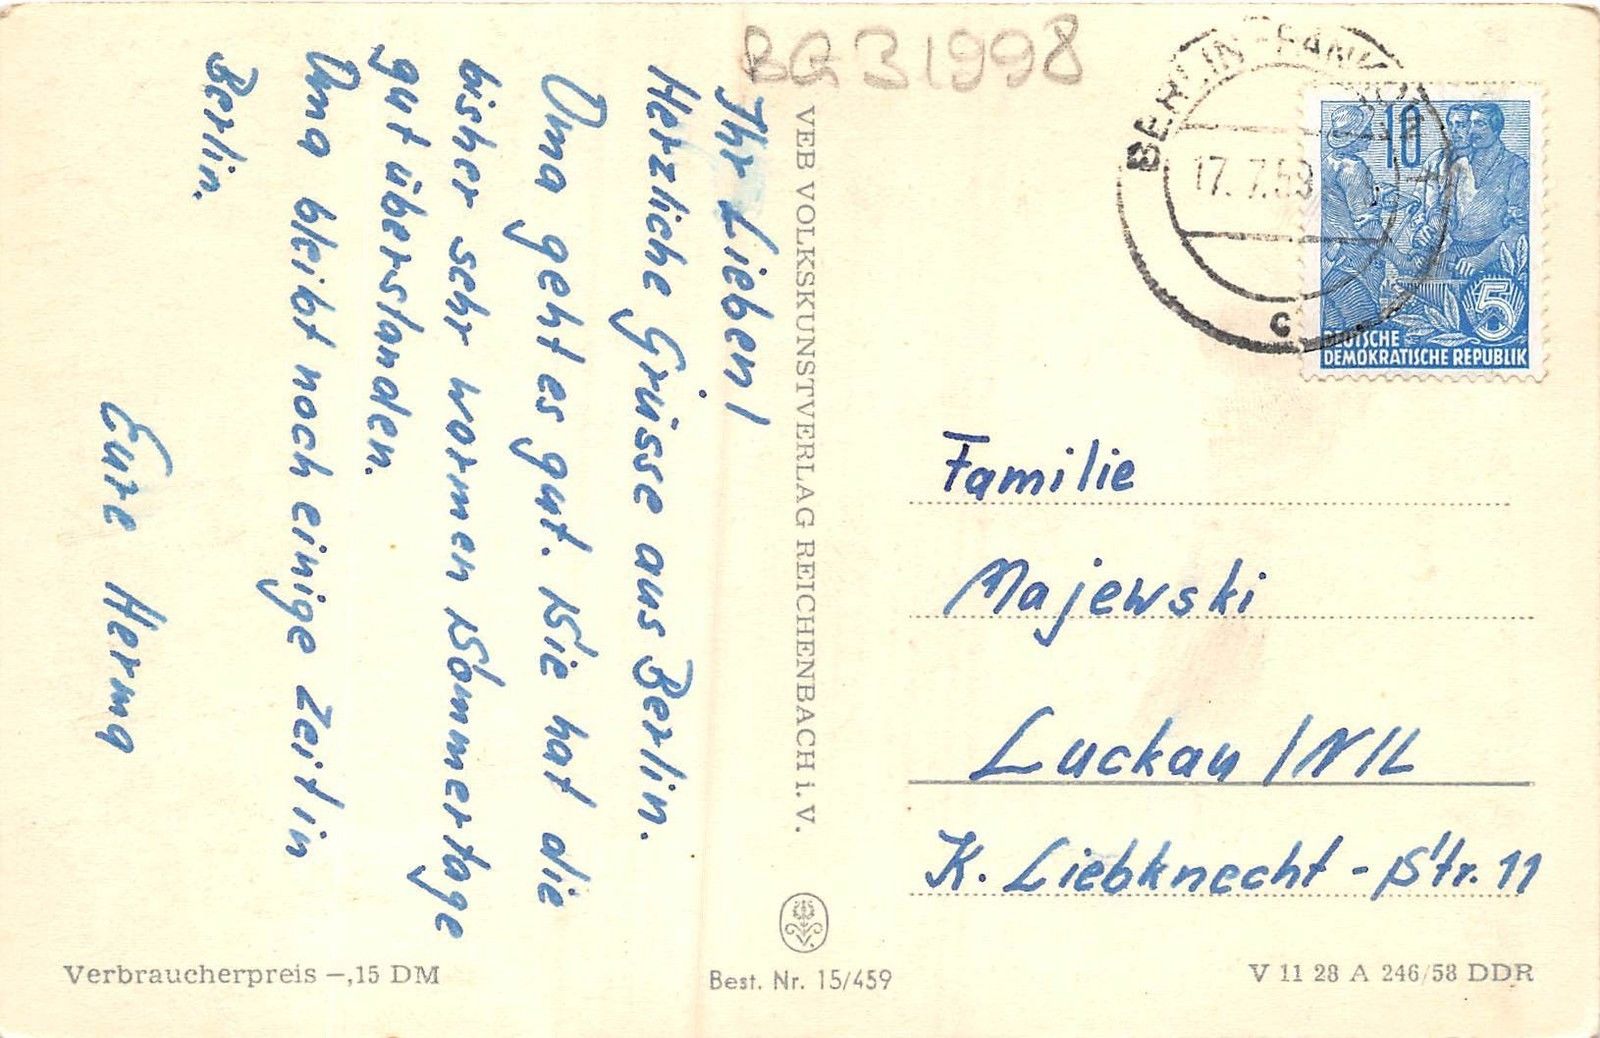 BQ31998
Ihr Lieben!
Herzliche Grüsse aus Berlin.
Oma geht es gut. Sie hat die
bisher sehr warmen Sommertage
gut überstanden.
Oma bleibt noch einige Zeit in
Berlin.
Eure Herma
VEB VOLKSKUNSTVERLAG REICHENBACH i. V.
BERLIN-PANKOW
17. 7. 59
c
10
5
DEUTSCHE
DEMOKRATISCHE REPUBLIK
Familie
Majewski
Luckau /N/L
K. Liebknecht-Str. 11
Verbraucherpreis –,15 DM
Best. Nr. 15/459
V 11 28 A 246/58 DDR